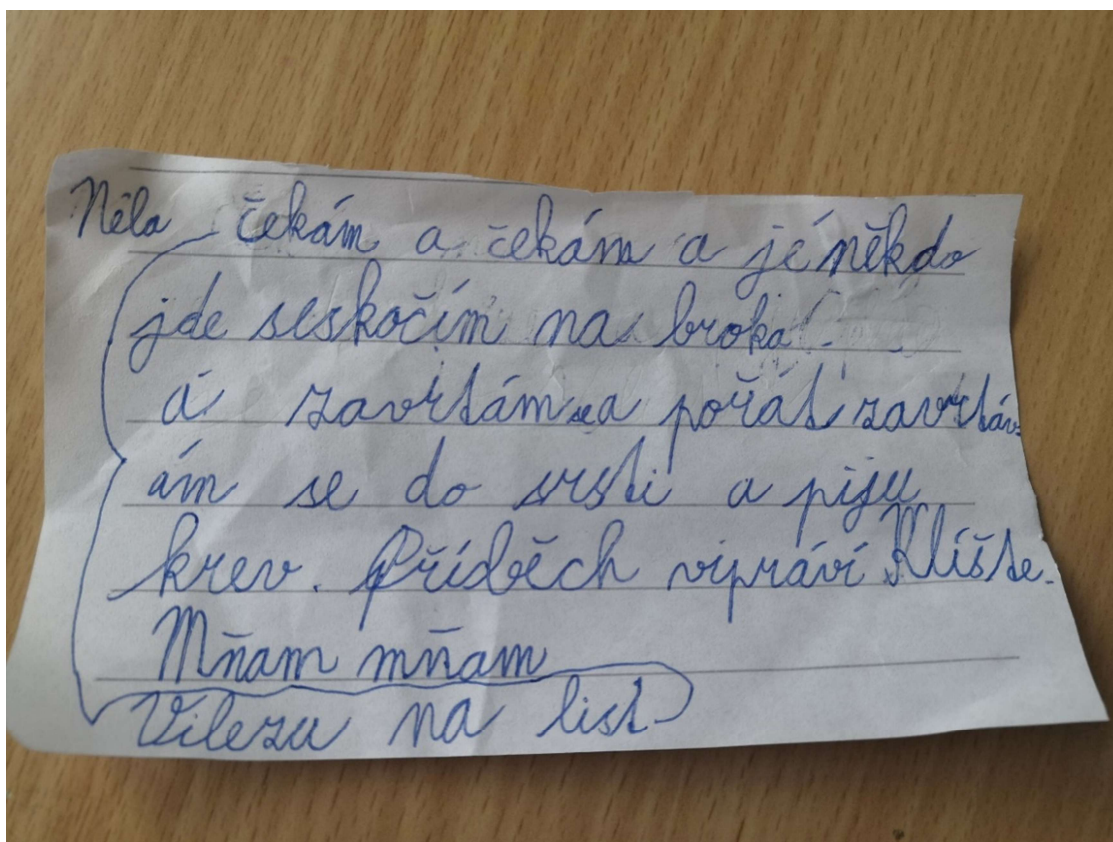 Néla čekám a čekám a jé někdo
jde seskočím na broka.
a zavrtám se a pořát zavrtáv
ám se do srsti a piju
krev. Příděch vipráví Klíšte.
Mňam mňam
Vilezu na list